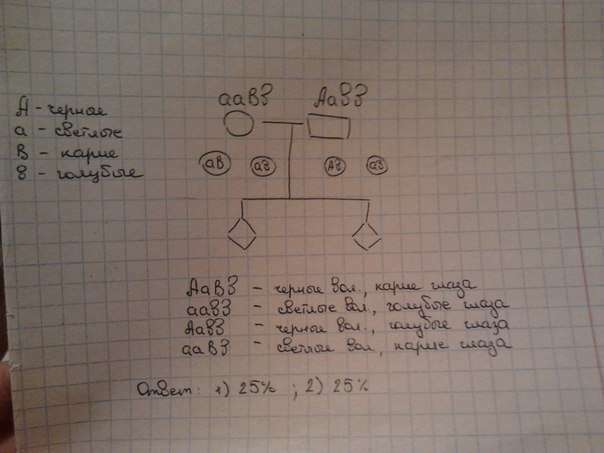 ааВв Аавв
А - черное
а - светлые
В - карие
в - голубые
аВ ав Ав ав
АаВв - черные вол., карие глаза
аавв - светлые вол., голубые глаза
Аавв - черные вол., голубые глаза
ааВв - светлые вол., карие глаза
Ответ: 1) 25% ; 2) 25%